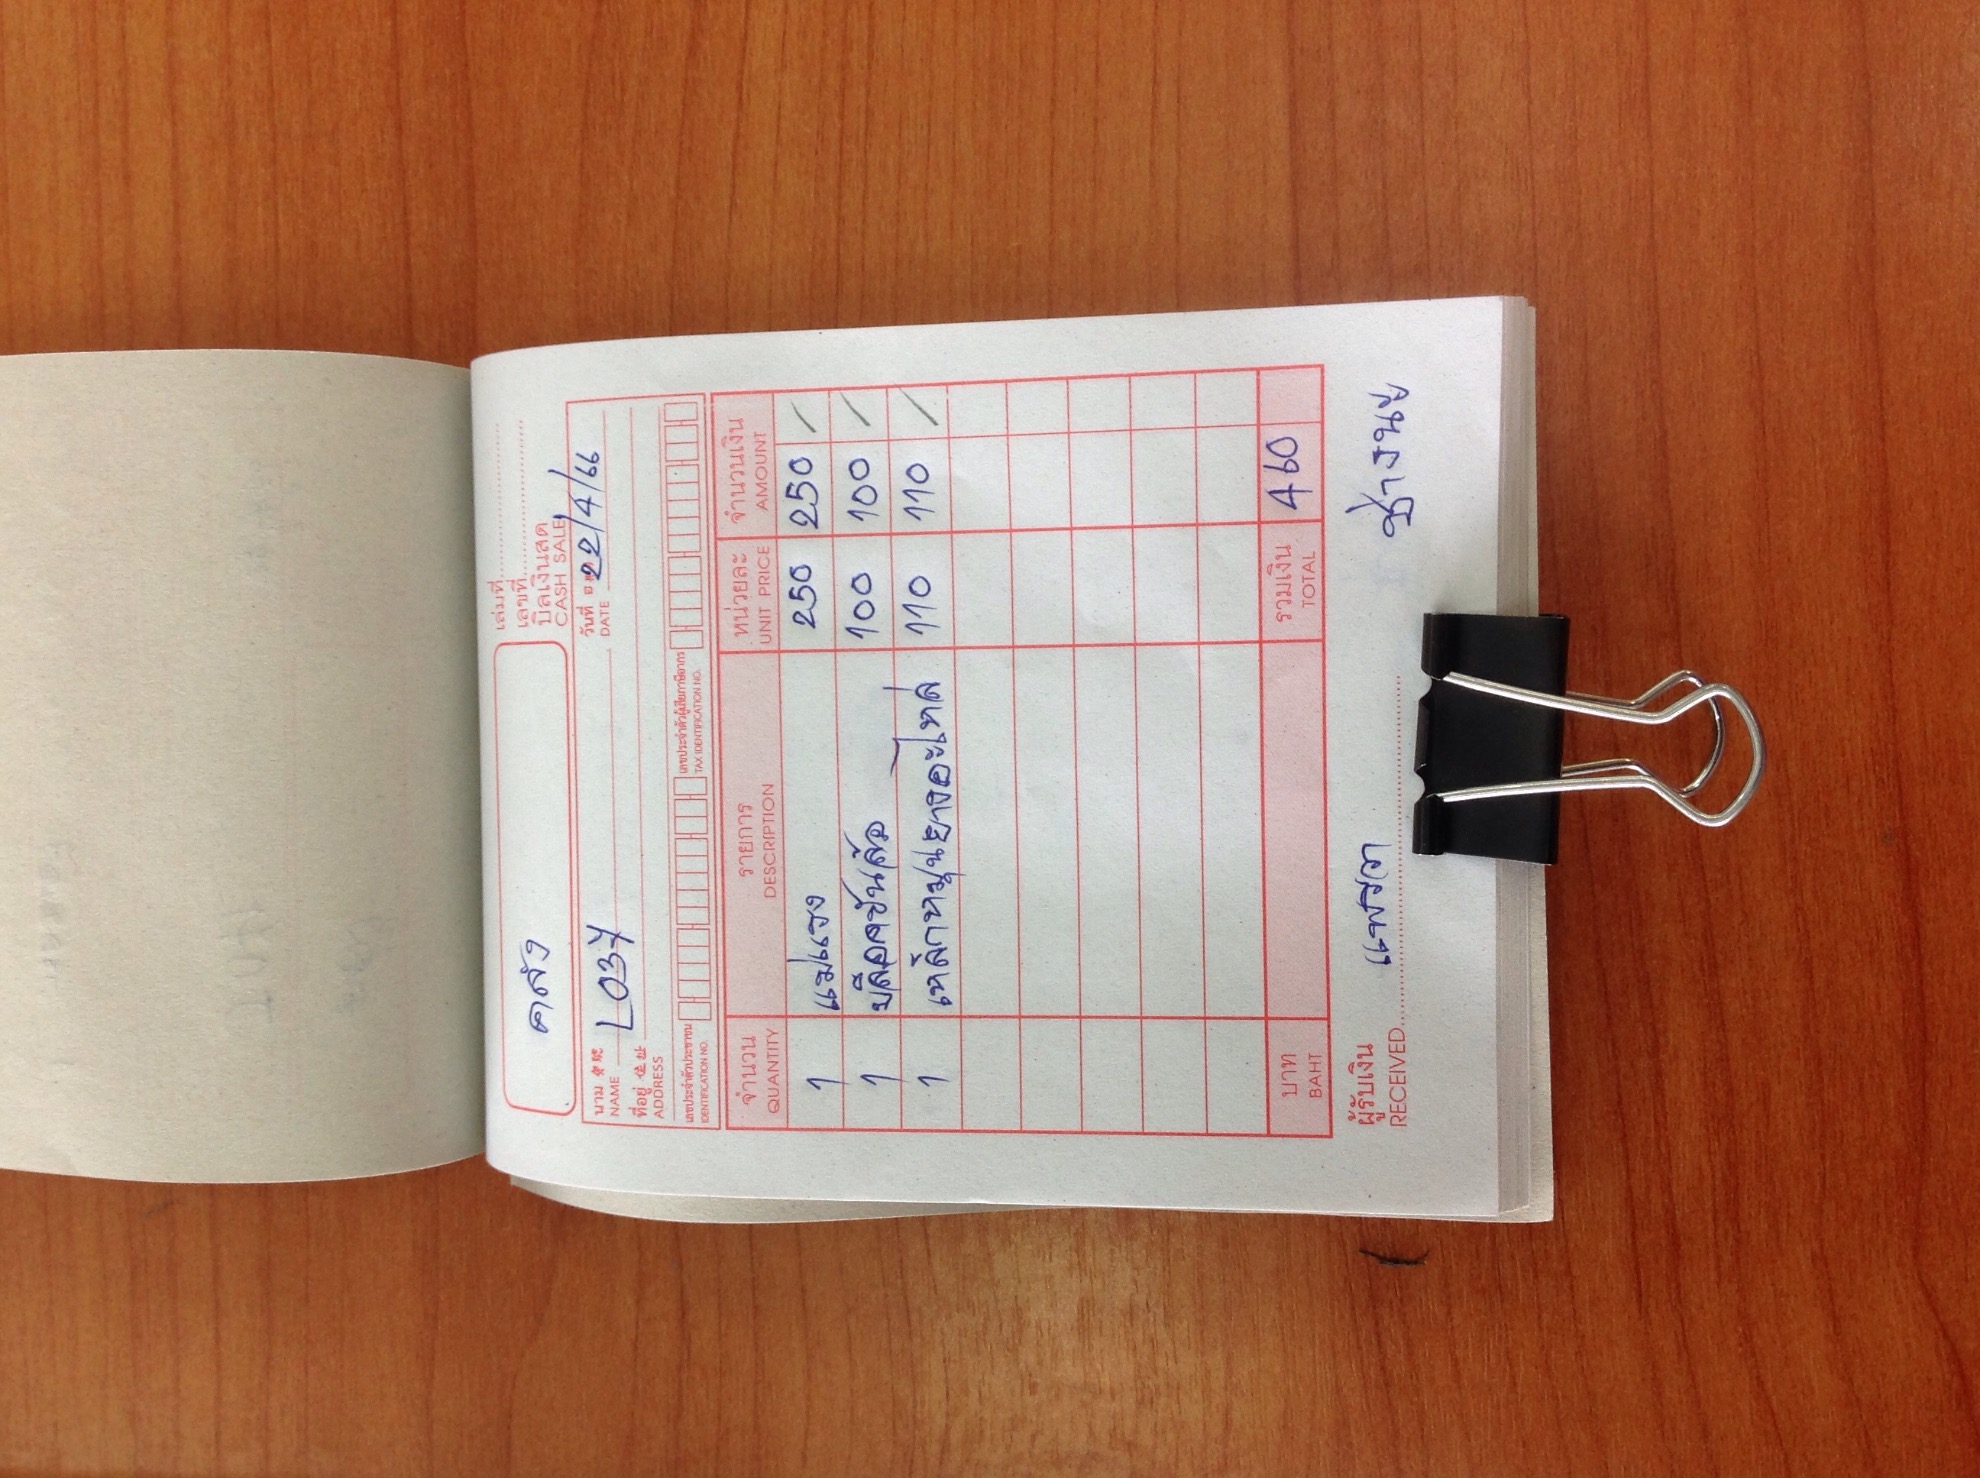 เล่มที่
เลขที่
คลัง
บิลเงินสด
CASH SALE
นาม
NAME L037
วันที่
DATE 22/4/66
ที่อยู่ 住址
ADDRESS
เลขประจำตัวประชาชน
IDENTIFICATION NO.
เลขประจำตัวผู้เสียภาษีอากร
TAX IDENTIFICATION NO.
จำนวน รายการ หน่วยละ จำนวนเงิน
QUANTITY DESCRIPTION UNIT PRICE AMOUNT
1 แม่แรง 250 250 /
1 บล็อคขันล้อ 100 100 /
1 เหล็กหมุนยางอะไหล่ 110 110 /
บาท รวมเงิน 460
BAHT TOTAL
ผู้รับเงิน
RECEIVED ช่างนุ